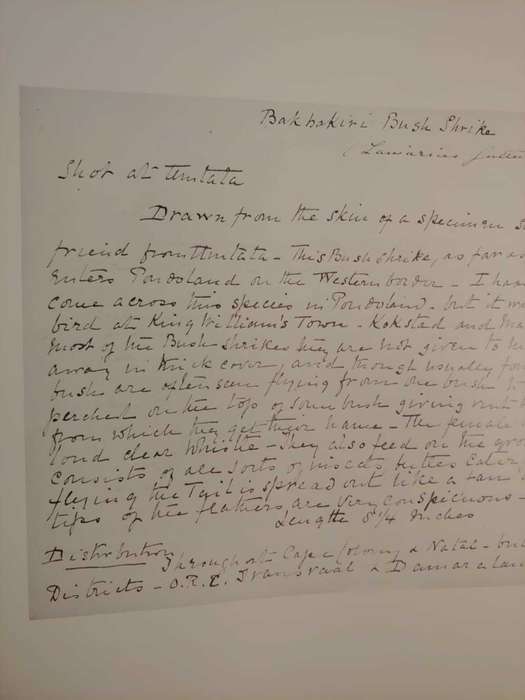 Bakbakiri Bush Shrike
(Laniarius
Shot at Umtata
Drawn from the skin of a specimen
friend from Umtata - This Bush Shrike, as far as
Enters Pondoland on the Western border - I have
come across this species in Pondoland - but it
bird at King William's Town - Kokstad and
most of the Bush-Shrikes they are not given to
away in thick cover, and though usually
bush are often seen flying from one bush
perched on the top of some bush giving vent
from which they get their name - The female
loud clear whistle - They also feed on the
consists of all sorts of insects
flying the Tail is spread out like a fan
tips of the feathers are very conspicuous -
Length 8 1/4 Inches
Distribution
Throughout Cape Colony & Natal -
Districts - O.R.C. Transvaal &